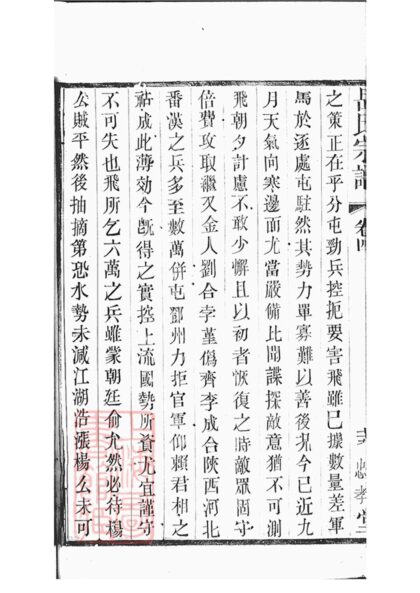 呂氏宗譜 卷四 忠孝堂
之策正在乎分屯勁兵控扼要害飛雖已據數量差軍
馬於逐處屯駐然其勢力單寡難以善後况今已近九
月天氣向寒邊面尤當嚴備比聞諜探敵意猶不可測
飛朝夕計慮不敢少懈且以初者恢復之時敵眾固守
倍費攻取繼又金人劉合孛堇僞齊李成合陝西河北
番漢之兵多至數萬併屯鄧州力拒官軍仰賴君相之
祐成此薄效今旣得之實控上流國勢所資尤宜謹守
不可失也飛所乞六萬之兵雖蒙朝廷俞允然必待楊
么賊平然後抽摘第恐水勢未減江湖浩漲楊么未可